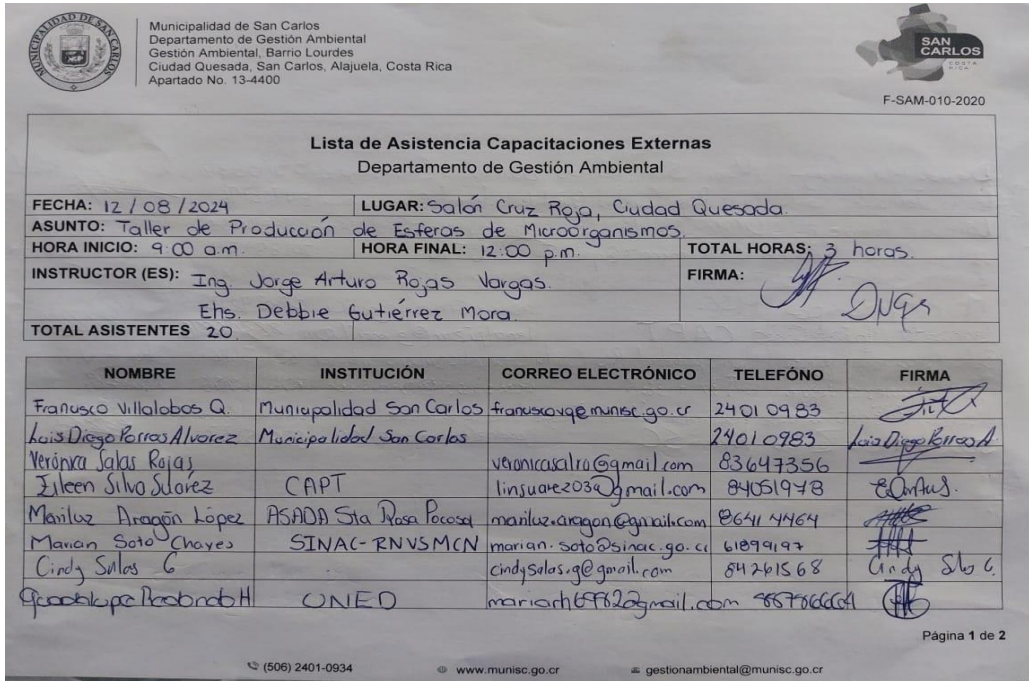 MUNICIPALIDAD DE SAN CARLOS
Municipalidad de San Carlos
Departamento de Gestión Ambiental
Gestión Ambiental, Barrio Lourdes
Ciudad Quesada, San Carlos, Alajuela, Costa Rica
Apartado No. 13-4400
SAN CARLOS
COSTA RICA
F-SAM-010-2020
Lista de Asistencia Capacitaciones Externas
Departamento de Gestión Ambiental
FECHA: 12/08/2024 LUGAR: Salón Cruz Roja, Ciudad Quesada.
ASUNTO: Taller de Producción de Esferas de Microorganismos.
HORA INICIO: 9:00 a.m. HORA FINAL: 12:00 p.m. TOTAL HORAS: 3 horas.
INSTRUCTOR (ES): Ing. Jorge Arturo Rojas Vargas. FIRMA:
Ehs. Debbie Gutiérrez Mora.
TOTAL ASISTENTES 20
NOMBRE INSTITUCIÓN CORREO ELECTRÓNICO TELEFÓNO FIRMA
Francisco Villalobos Q. Municipalidad San Carlos franciscovq@munisc.go.cr 24010983
Luis Diego Porras Alvarez Municipalidad San Carlos 24010983 Luis Diego Porras A.
Verónica Salas Rojas veronicasalro@gmail.com 83647356
Eileen Silva Suárez CAPT 84051978
Mariluz Aragón López ASADA Sta Rosa Pocosol mariluz.aragon@gmail.com 86414464
Marian Soto Chaves SINAC-RNVSMCN marian.soto@sinac.go.cr 61899197
Cindy Salas G cindysalas.g@gmail.com 84261568 Cindy Sls G.
Guadalupe H UNED
Página 1 de 2
(506) 2401-0934 www.munisc.go.cr gestionambiental@munisc.go.cr